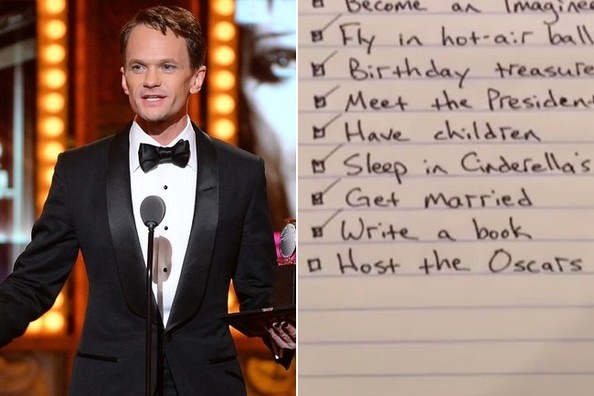 Become an Imagine
Fly in hot-air ball
Birthday treasure
Meet the President
Have children
Sleep in Cinderella's
Get Married
Write a book
Host the Oscars